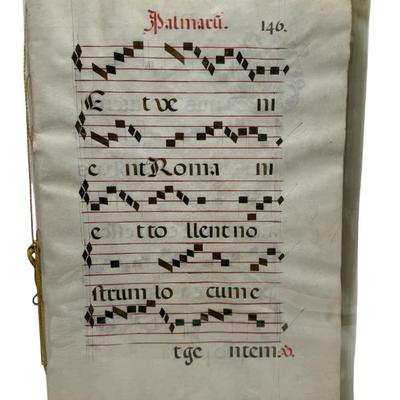 Palmarū. 146.
Et ve ni
ent Roma ni
et to llent no
strum lo cum e
t ge ntem. ℣.